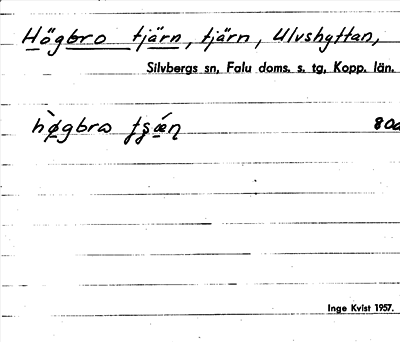 Högbro tjärn, tjärn, Ulvshyttan,
Silvbergs sn, Falu doms. s. tg, Kopp. län.
hø̀gbro
Inge Kvist 1957.